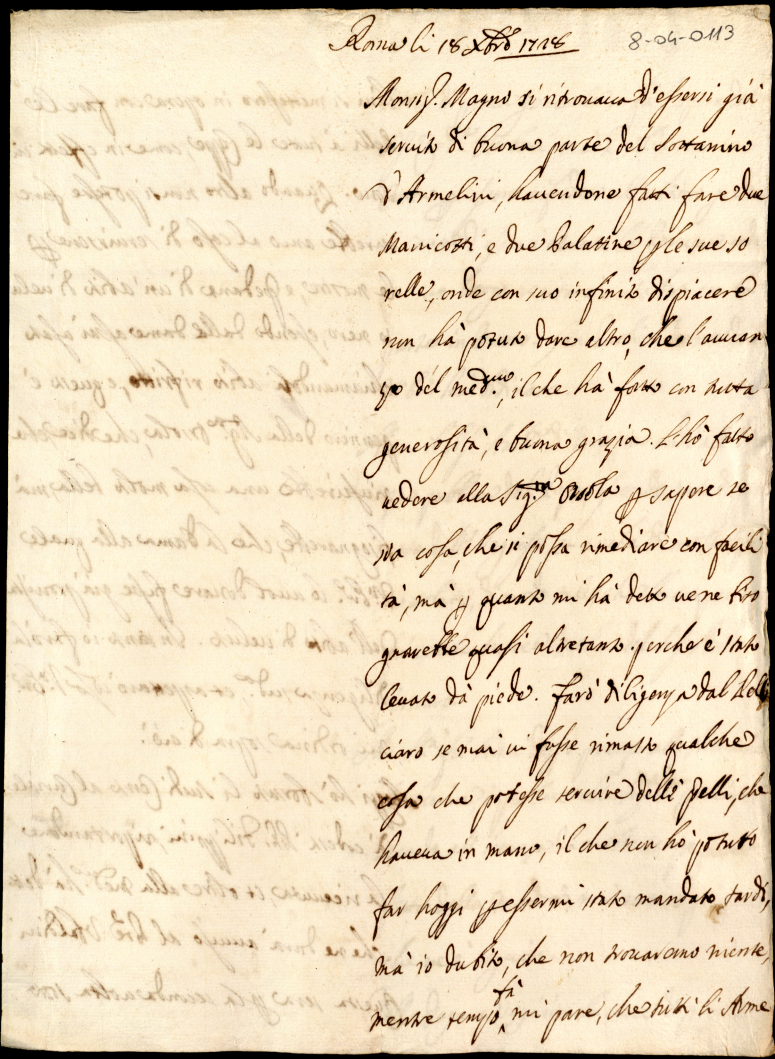 Roma li 18 Xbre 1728
8-04-0113
Monsig.r Magno si ritrovava d'essersi già
servito di buona parte del Sottanino
d'Armelini, havendone fatti fare due
Manicotti, e due Palatine p le sue so
relle, onde con suo infinito dispiacere
non hà potuto dare altro, che l'avvan
zo del med.mo, il che hà fatto con tutta
generosità, e buona grazia. L'hò fatto
vedere alla Sig.ra Orsola p sapere se
sia cosa, che si possa rimediare con facili
tà, mà p quanto mi hà detto ve ne biso
gnarebbe quasi altretanto perche è stato
levato dà piede. Farò diligenza dal Pelli
ciaro se mai vi fosse rimasto qualche
cosa che potesse servire delle Pelli, che
haveva in mano, il che non hò potuto
far hoggi p essermi stato mandato tardi,
mà io dubito, che non trovaremo niente,
mentre tempo fà mi pare, che tutti li Arme